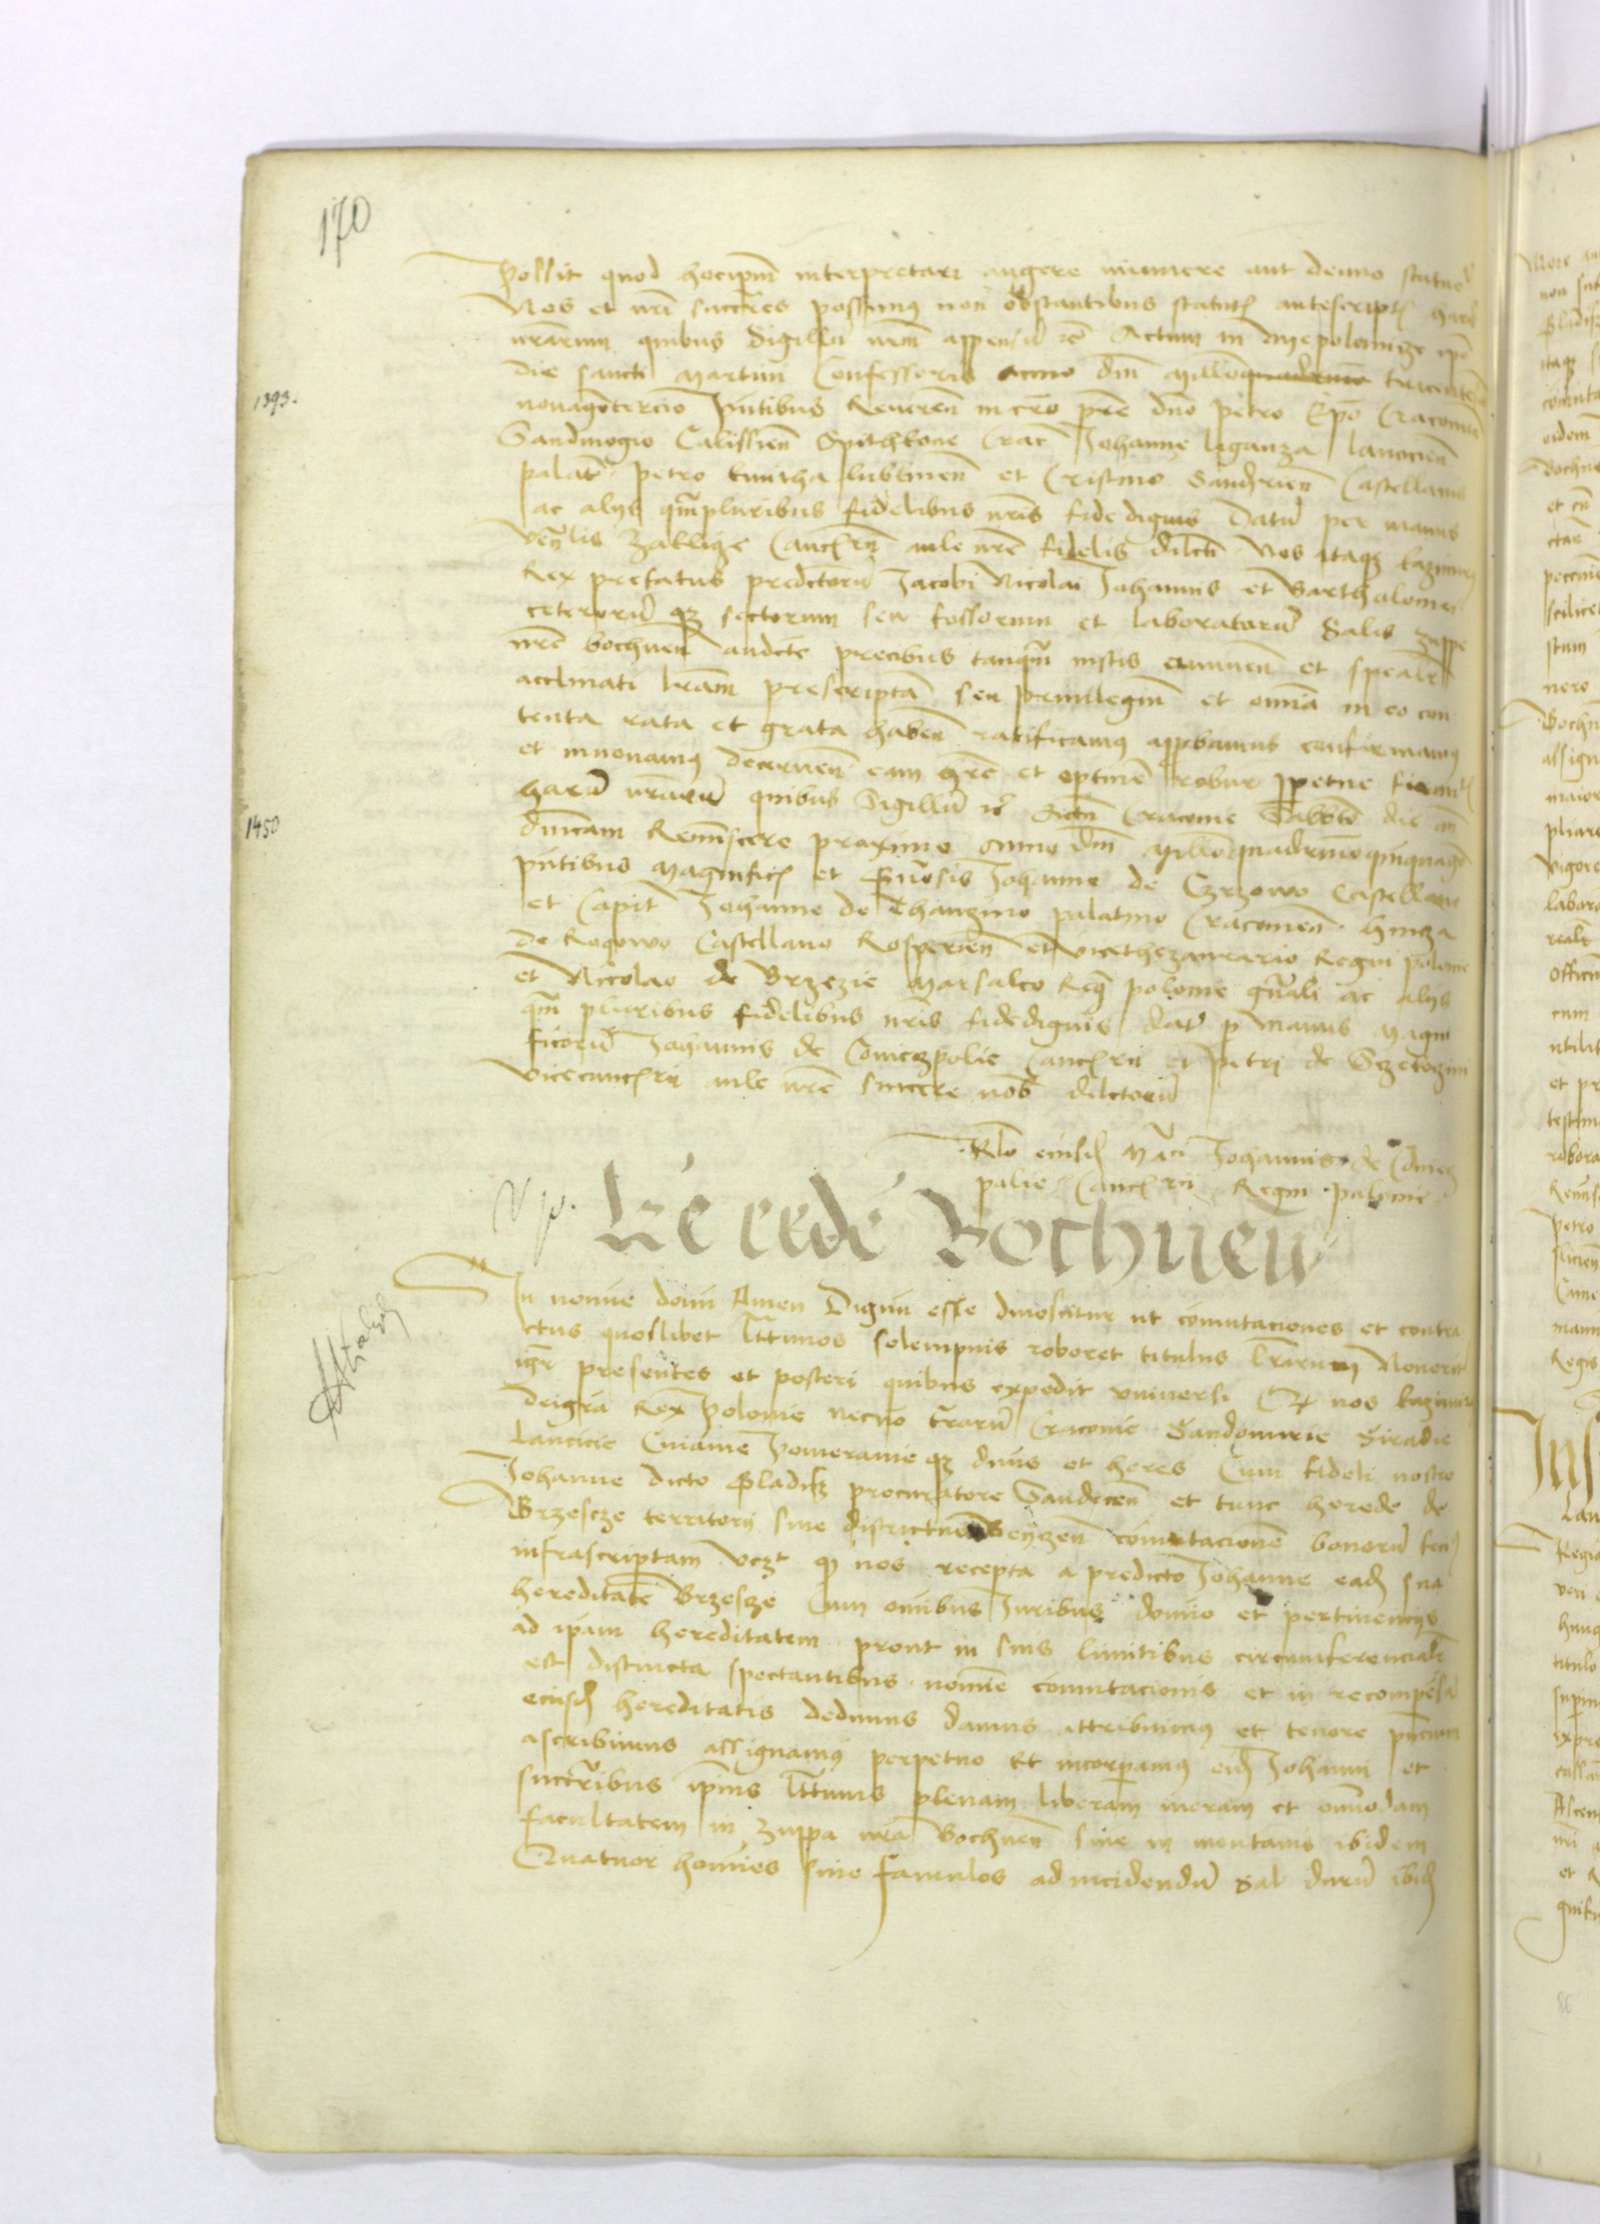 170
Pollit quod hocipm interpretari augere minuere aut denuo statue
Nos et nri succres possumus non obstantibus statutis antescriptis
nrarum quibus Sigillu nrm appensu est Actum in Nyepolomycze ipo
die sancti Martini Confessoris Anno dni Millo quadrmo trecente
1393.
nonagotercio Pntibus Reueren in cro pre dno Petro Epo Cracouien
Sandiuogio Calissien Spithkone Crac Johanne liganza lancicien
palat Petro kmitha lublinen et Cristino Sandrien Castellanis
ac alijs qmpluribus fidelibus nris fidedignis Datu per manus
venlis Zaklicze Cancrij aule nre fidelis dilcti Nos itaq kazimirus
Rex prefatus predctoru Jacobi Nicolai Johannis et Bartholomei
ceteroruq sectorum seu fossorum et laboratoru Salis zuppe
nre bochnen audcte precibus tanqm iustis et spealr
acclinati lram prescripta seu priuilegiu et omia in eo con
tenta rata et grata haben ratificamus appbamus confirmamus
et innouamus decernen eam hre et optine robur ppetue firmit
haru nraru quibus Sigillu est Datu Cracouie Sabbto die an
1450
dnicam Reminiscere proximo Anno dni Millo quadrmo quinquago
pntibus Magnificis et Gnosis Johanne de Czyzowo Castellano
et Capit Johanne de Thanczino palatino Cracouien hincza
de Rogowo Castellano Rosperien et vicethezaurario Regni polonie
et Nicolao de Brzezie Marsalco Regni polonie gnali ac alijs
qm pluribus fidelibus nris fidedignis dat p manus Magni
ficoru Johannis de Conieczpolie Cancrij et Petri de Sczekoczini
vicecancrij aule nre sincere nob dilctoru
Rlo eiusd Mci Johannis de Coniecz
polie Cancrij Regni polonie
Lre eede Bochnen
In nomine domi Amen Dignu esse dinoscitur ut comutaciones et contra
ctus quoslibet lttimos solempnis roboret titulus lrarum Nouerit
igr presentes et posteri quibus expedit vniuersi Qr nos kazimirus
deigra Rex Polonie necno trraru Cracouie Sandomirie Siradie
Lancicie Cuiauie Pomeranieq dnus et heres Cum fideli nostro
Johanne dicto Gladisz procuratore Sandecen et tunc herede de
Brzescze territorij siue districtus comutacionem bonoru fecimus
infrascriptam vczt q nos recepta a predicto Johanne ead sua
hereditate Brzescze Cum omibus Juribus domio et pertinencijs
ad ipam hereditatem prout in suis limitibus circumferencialr
est distincta spectantibus nomine comutacionis et in recompensa
eiusd hereditatis dedimus damus attribuimus et tenore pncium
ascribimus assignamus perpetuo et incorpamus eid Johanni et
succribus ipius lttimis plenam liberam meram et omnimodam
facultatem in zuppa nra Bochnen siue in montanis ibidem
Quatuor homies siue famulos ad incidendu sal duru ibid